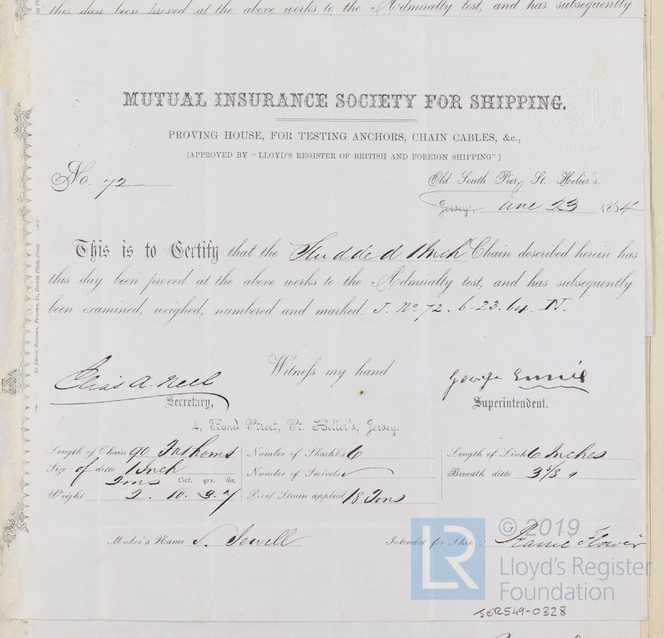 this day been proved at the above works to the Admiralty test, and has subsequently
MUTUAL INSURANCE SOCIETY FOR SHIPPING.
PROVING HOUSE, FOR TESTING ANCHORS, CHAIN CABLES, &c.,
(APPROVED BY "LLOYD'S REGISTER OF BRITISH AND FOREIGN SHIPPING")
No. 72
Old South Pier, St. Helier's.
Jersey, June 23 1864
This is to Certify that the Studded Inch Chain described herein has
this day been proved at the above works to the Admiralty test, and has subsequently
been examined, weighed, numbered and marked J. No 72. 6. 23. 64. N.
Witness my hand
Elias A. Neel
George Ennis
Secretary,
Superintendent.
4, Bond Street, St. Helier's, Jersey.
Length of Chain 90 Fathoms
Number of Shackles 6
Length of Link 6 Inches
Size of ditto 1 Inch
Number of Swivels
Breadth ditto 3 5/8
Tons Cwt. qrs. lbs.
Weight 2. 10. 3. 7
Proof Strain applied 18 Tons
Maker's Name Sewell
Intended for Ship:
© 2019
LR
Lloyd's Register
Foundation
SER549-0328